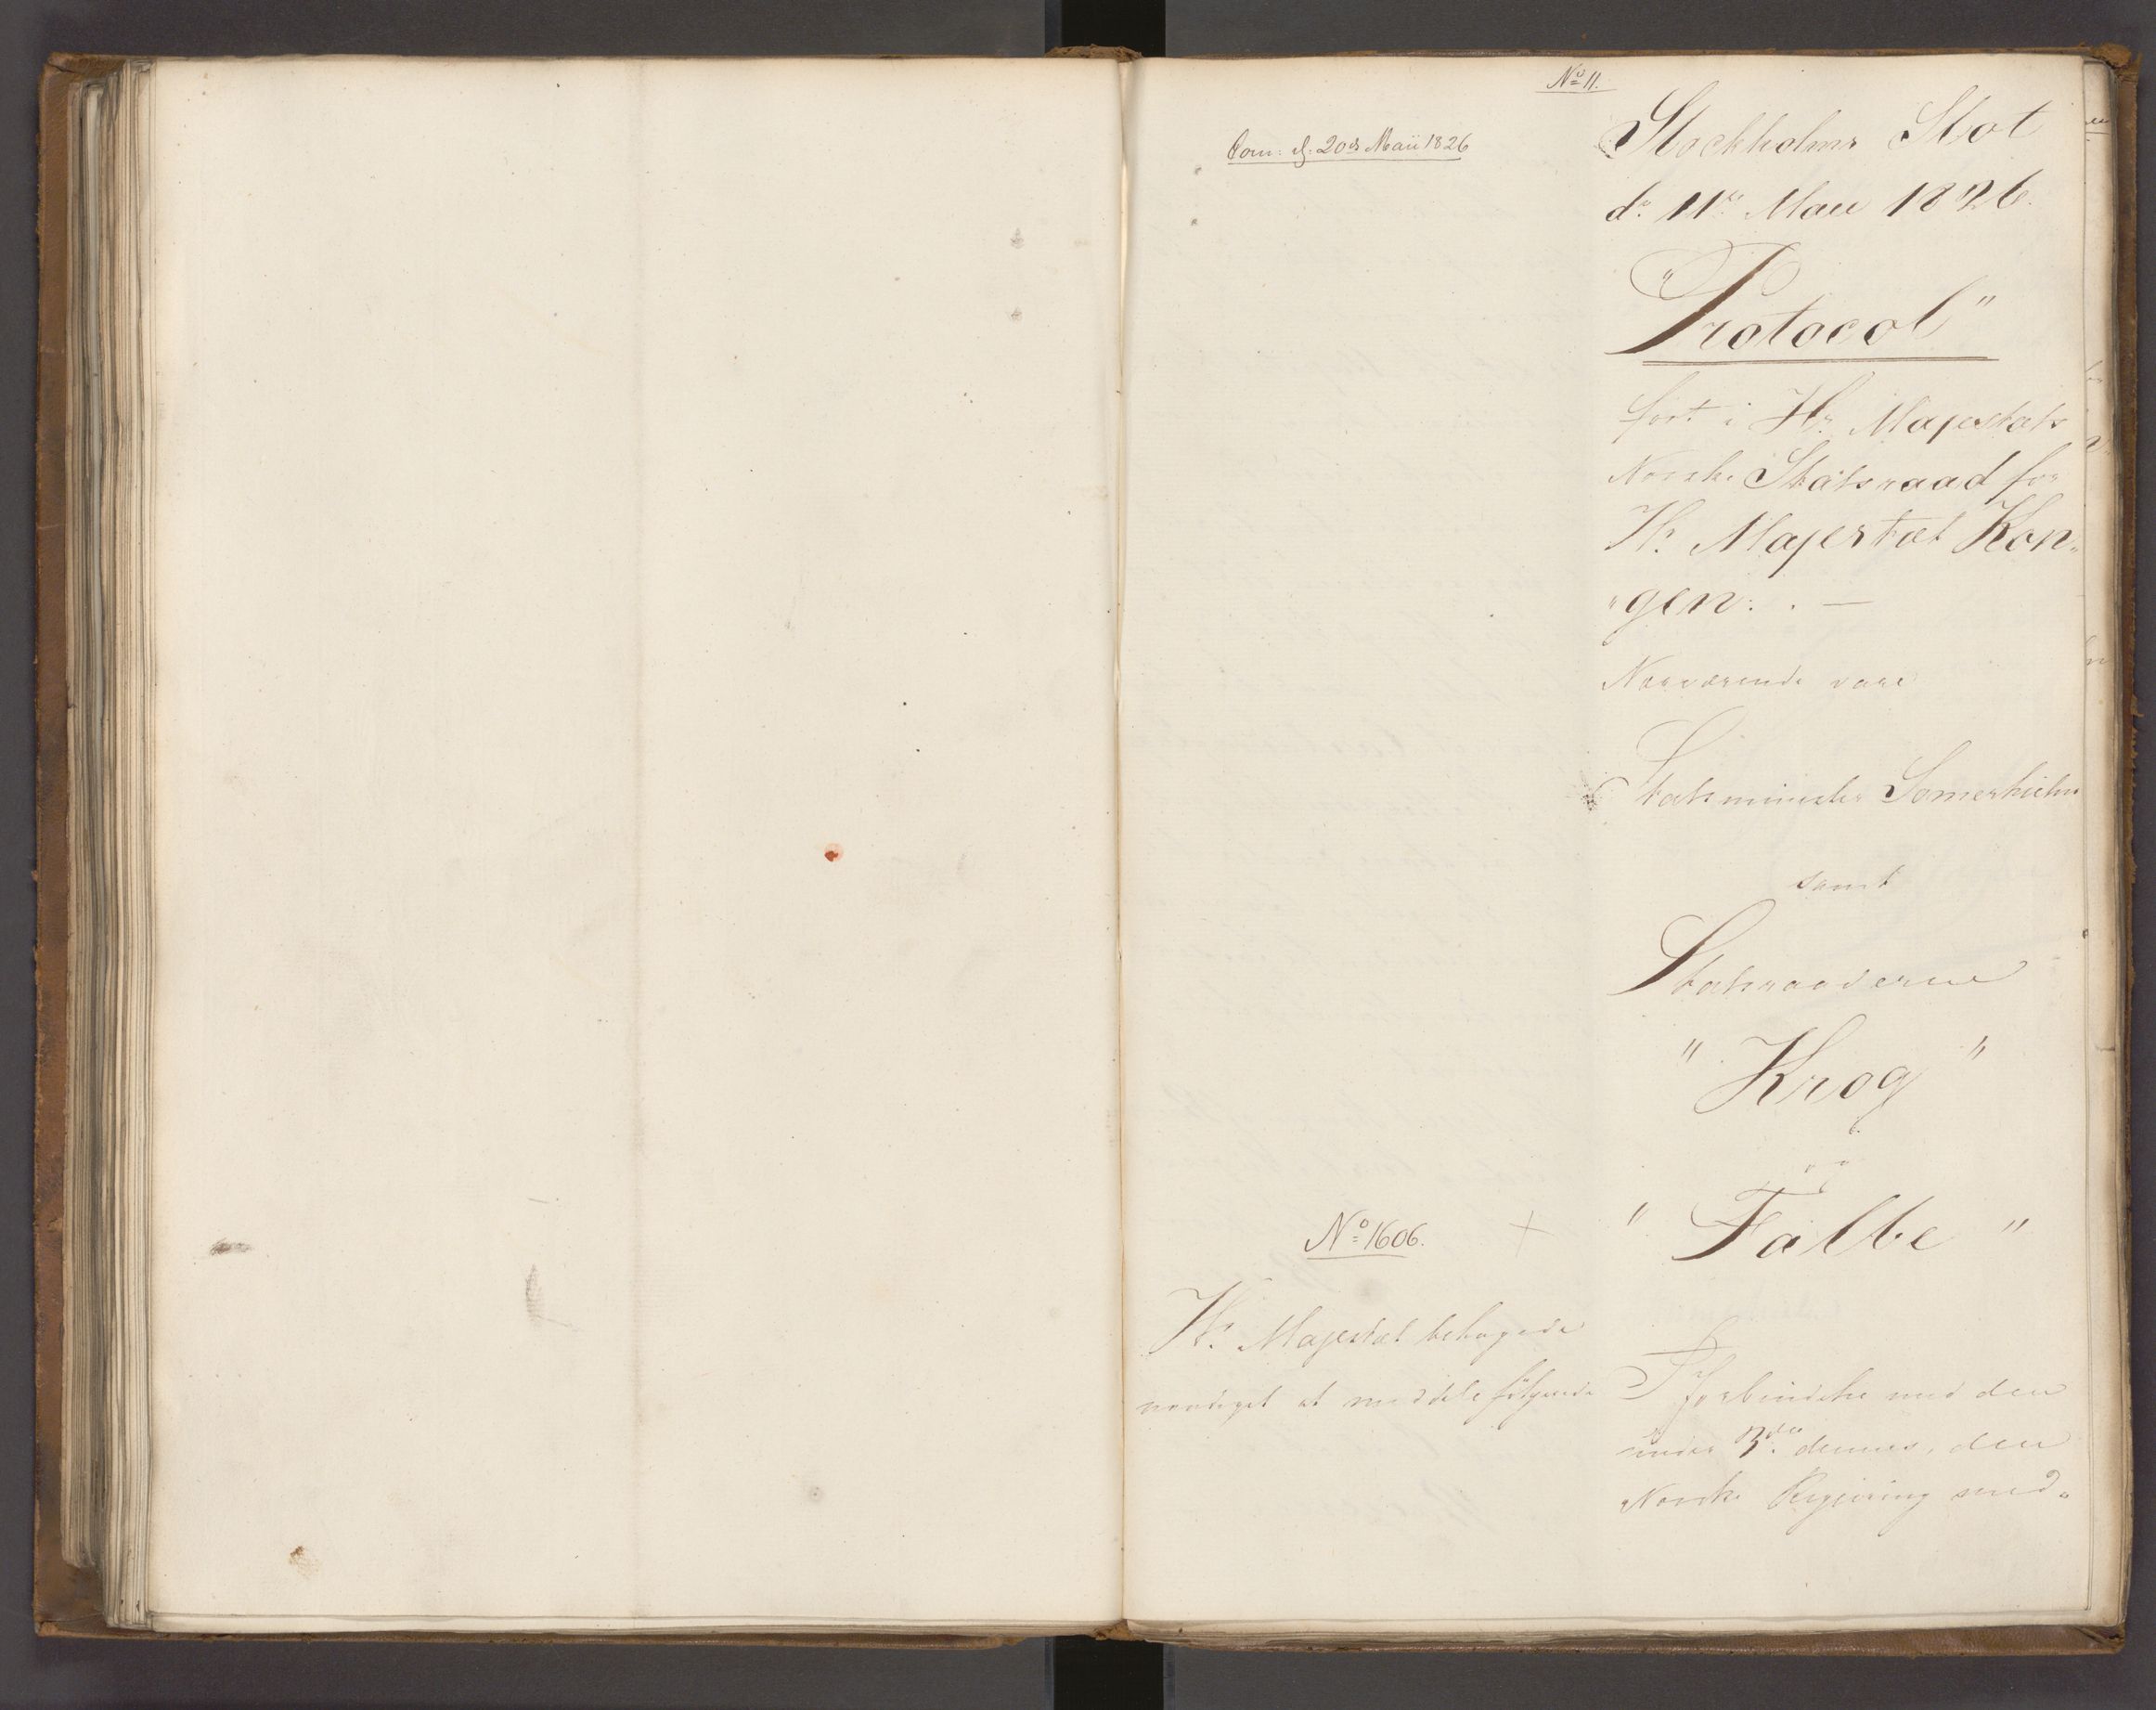 No 11.
Com: d. 20de Maii 1826
Stockholms Slot
dn 11te Maii 1826.
"Protocol"
fört i Hs Majestæts
Norske Statsraad for
Hs. Majestæt Kon„
„gen: . —
Nærværende vare
Statsminister Somerhielm
samt
Statsraaderne
" Krog "
" Falbe "
No 1606.
Hs. Majestæt behagede
naadigst at meddele følgende
I forbindelse med den
under 3die dennes, den
Norske Regjering med„